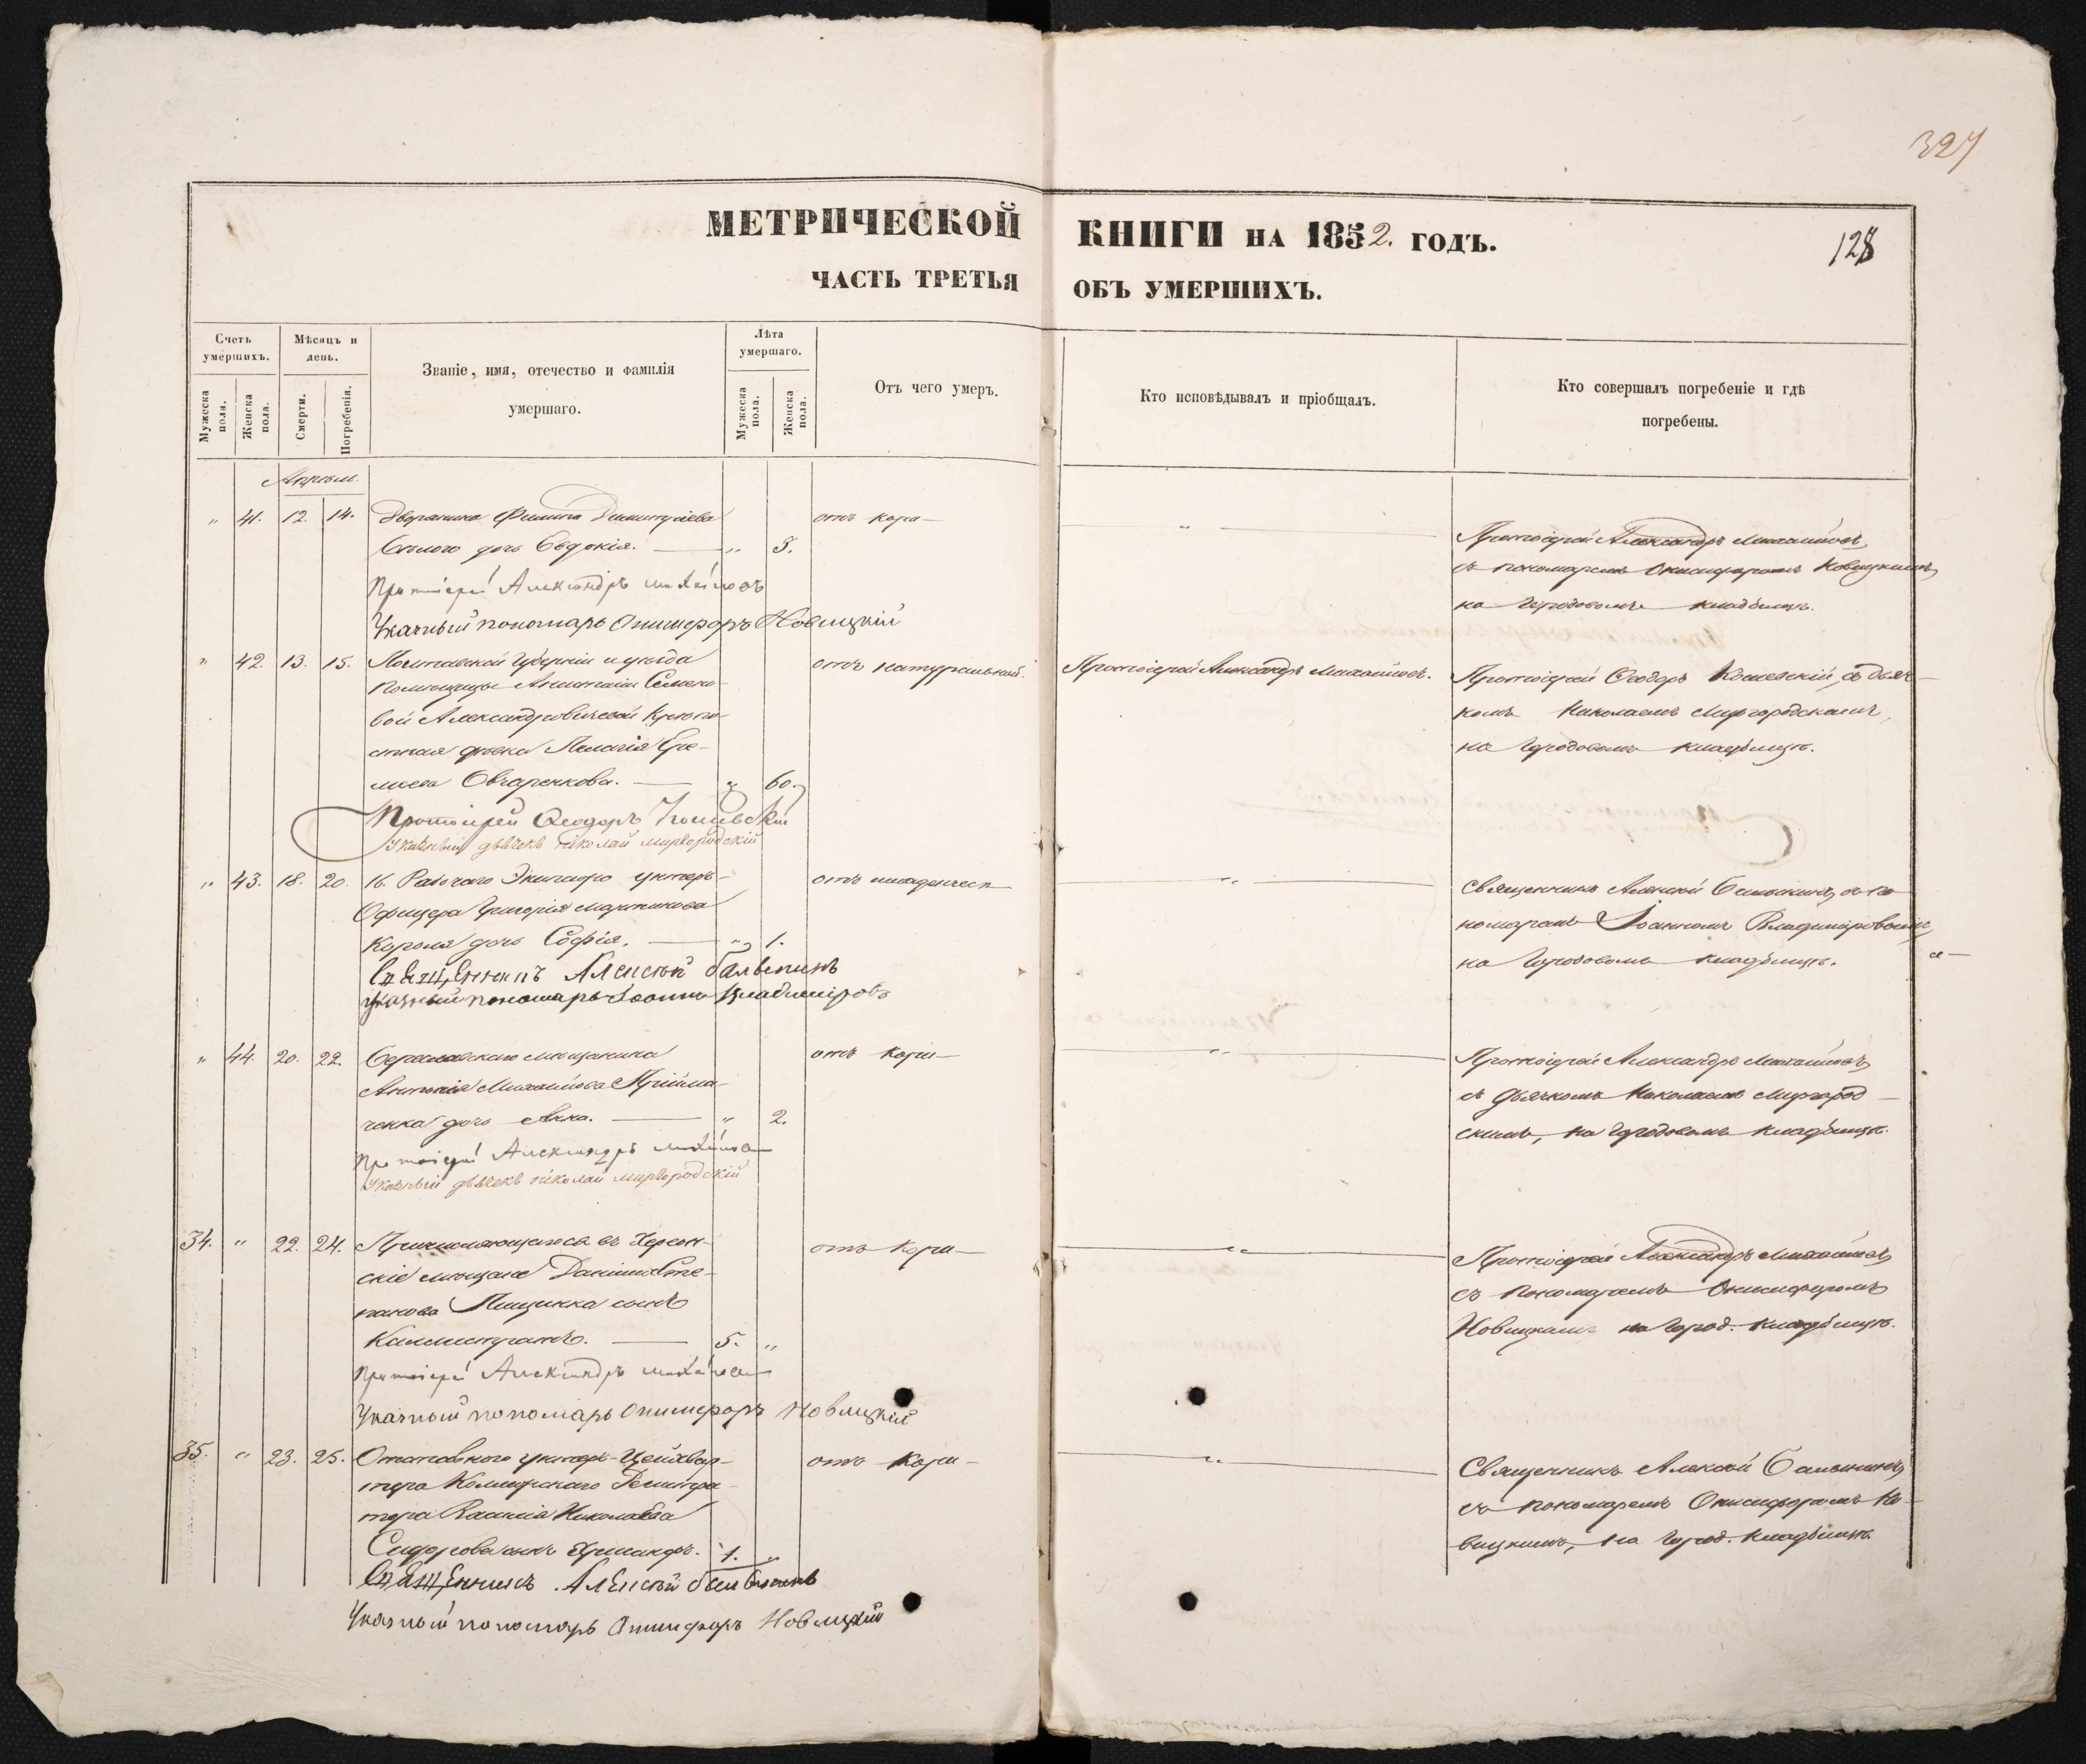 327
МЕТРИЧЕСКОЙ КНИГИ НА 1852. ГОДЪ.
128
ЧАСТЬ ТРЕТЬЯ ОБЪ УМЕРШИХЪ.
Счетъ умершихъ.
Мужеска пола.
Женска пола.
Мѣсяцъ и день.
Смерти.
Погребенія.
Званіе, имя, отечество и фамилія умершаго.
Лѣта умершаго.
Мужеска пола.
Женска пола.
Отъ чего умеръ.
Кто исповѣдывалъ и пріобщалъ.
Кто совершалъ погребеніе и гдѣ погребены.
Апрѣль.
" 41. 12. 14. Дворянина Филипа Димитріева
дочь Евдокія. — " 3.
отъ кори —
"
Протоіерей Александръ Михайловъ,
съ пономаремъ Онисифоромъ Новицкимъ,
на Городовомъ кладбищѣ.
Протоіерей Александръ Михайловъ
Указный пономарь Онисифоръ Новицкій
" 42. 13. 15. Полтавской Губерніи и уѣзда
помѣщицы Семено-
вой Александровичевой крѣпо-
стная дѣвка Пелагія Ере-
меева Овчаренкова. — " 60.
отъ натуральной.
Протоіерей Александръ Михайловъ.
Протоіерей Ѳеодоръ Кошевскій, съ дьяч-
комъ Николаемъ Миргородскимъ,
на Городовомъ кладбищѣ.
Протоіерей Ѳеодоръ Кошевскій
Указный дьячекъ Николай Миргородскій
" 43. 18. 20. 16. Рабочаго Экипажа унтеръ-
Офицера Григорія Мартинова
Короля дочь Софія. — " 1.
отъ младенческ
"
Священникъ Алексій Бальвинъ, съ по-
номаремъ Іоанномъ Владиміровымъ,
на Городовомъ кладбищѣ.
Священникъ Алексѣй
Указный пономарь Іоаннъ Владиміровъ
" 44. 20. 22. Бериславскаго мѣщанина
Антонія Михайлова Прійма-
ченка дочь Анна. — " 2.
отъ кори —
"
Протоіерей Александръ Михайловъ,
съ дьячкомъ Николаемъ Миргород-
скимъ, на Городовомъ кладбищѣ.
Протоіерей Александръ Михайловъ
Указный дьячекъ Николай Миргородскій
34. " 22. 24. Причисляющагося въ Херсон-
скіе мѣщане Даніила Сте-
панова Пищенка сынъ
Каллистратъ. — 5. "
отъ кори —
"
Протоіерей Александръ Михайловъ,
съ пономаремъ Онисифоромъ
Новицкимъ на Город. кладбищѣ.
Протоіерей Александръ Михайловъ
Указный пономарь Онисифоръ Новицкій
35. " 23. 25. Отставнаго унтеръ-Цейхвар-
тера
Василія Николаева
Сидорова сынъ 1. "
отъ кори —
"
Священникъ Алексій
съ пономаремъ Онисифоромъ Но-
вицкимъ, на Город. кладбищѣ.
Священникъ Алексѣй
Указный пономарь Онисифоръ Новицкій